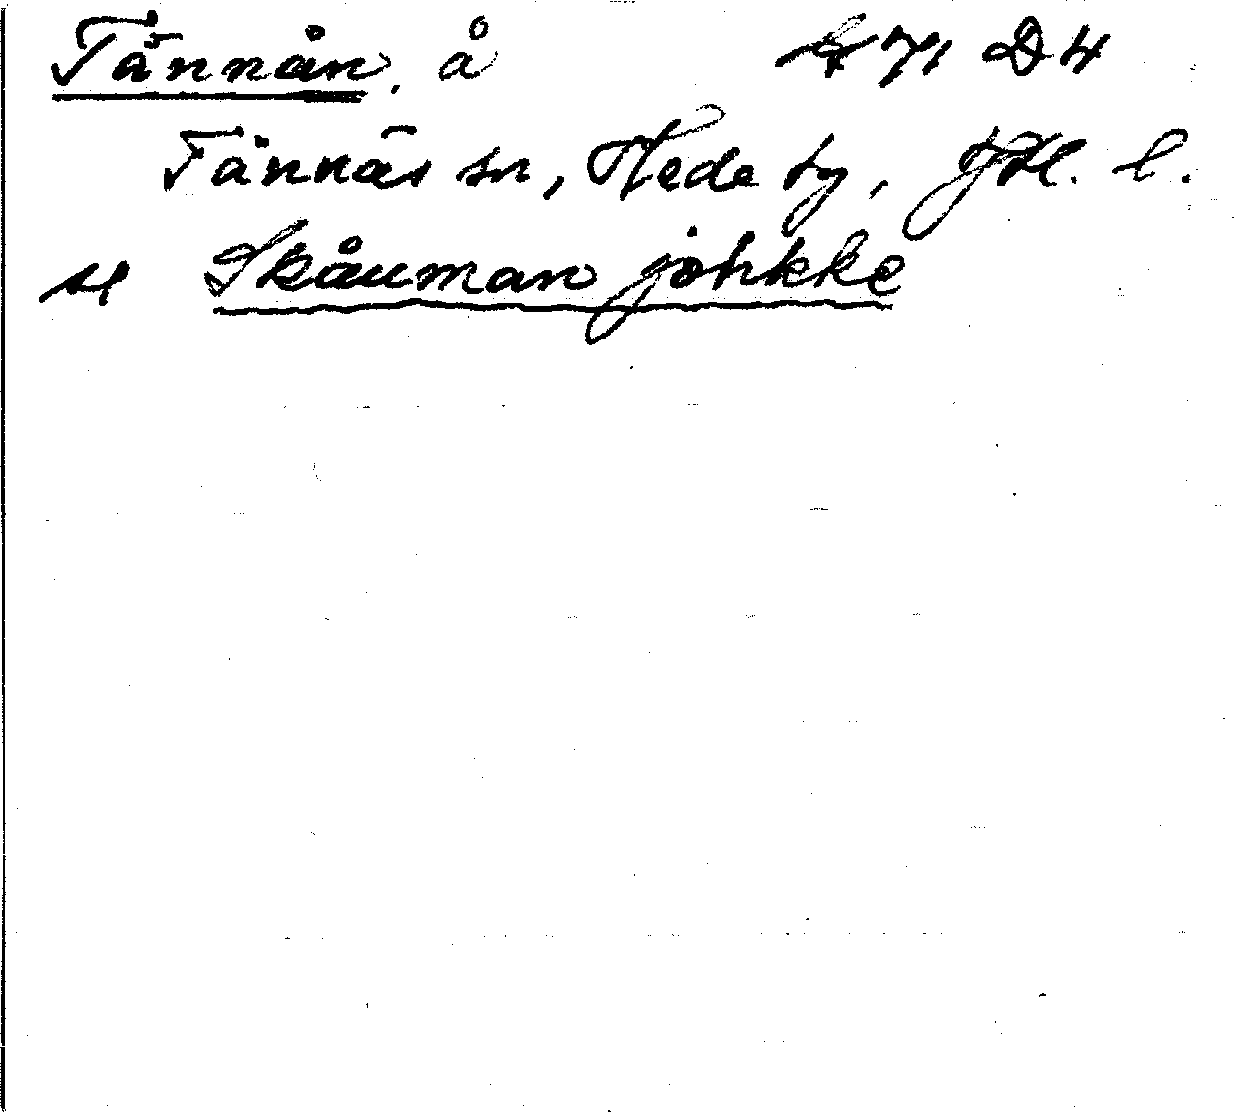 Tännån, å 71 D4
Tännäs sn, Hede tg, Jtl. l.
se Skåuman johkke